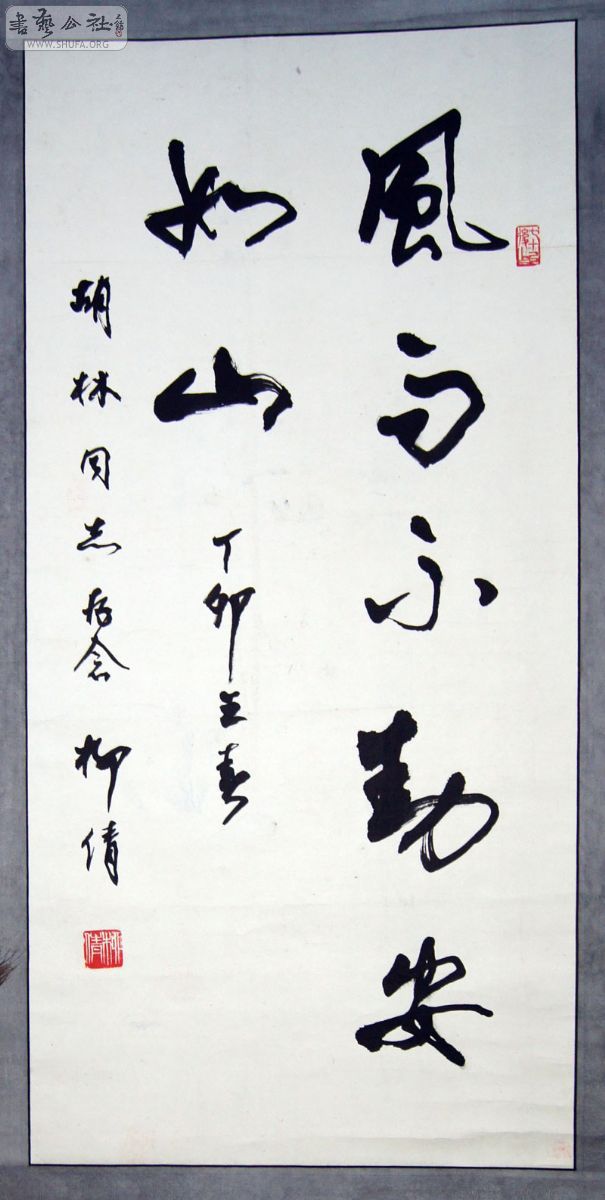 風雨不動安
如山
丁卯之春
胡林同志存念 柳倩
柳倩
書藝公社
WWW.SHUFA.ORG